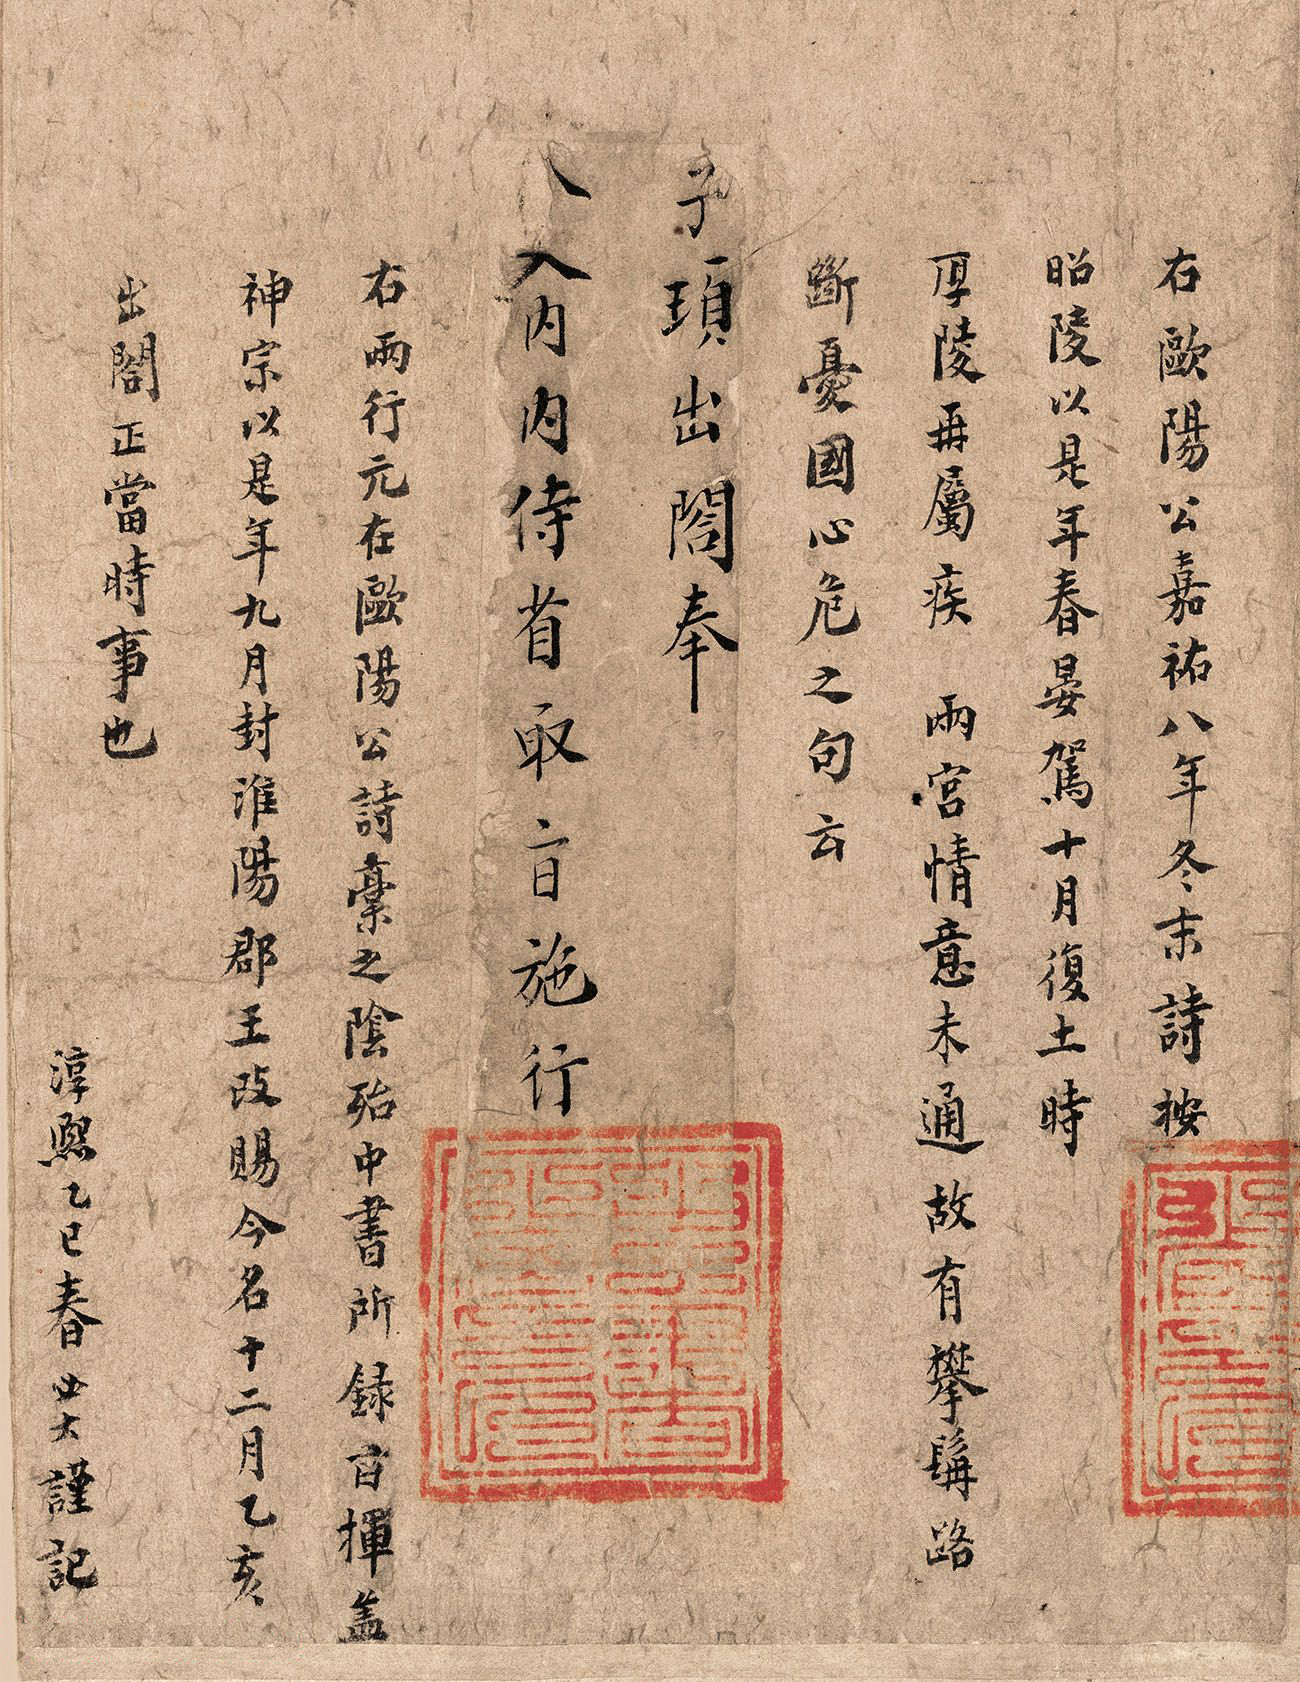 右歐陽公嘉祐八年冬末詩按
昭陵以是年春晏駕十月復土時
厚陵再屬疾　兩宮情意未通故有攀髯路
斷憂國心危之句云
子頊出閤奉
入內內侍省取旨施行
右兩行元在歐陽公詩稾之陰殆中書所録旨揮盖
神宗以是年九月封淮陽郡王改賜今名十二月乙亥
出閤正當時事也
淳熈乙巳春　謹記